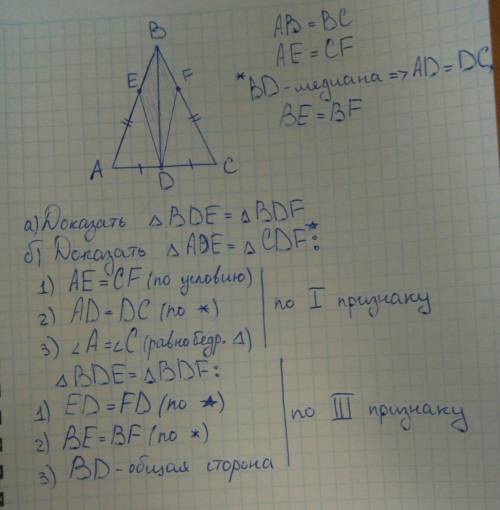 B
E
F
A
D
C
AB = BC
AE = CF
*BD - медиана => AD = DC,
BE = BF
а) Доказать △BDE = △BDF
б) Доказать △ADE = △CDF*:
1) AE = CF (по условию)
2) AD = DC (по *)
3) ∠A = ∠C (равнобедр. △)
по I признаку
△BDE = △BDF:
1) ED = FD (по *)
2) BE = BF (по *)
3) BD - общая сторона
по III признаку